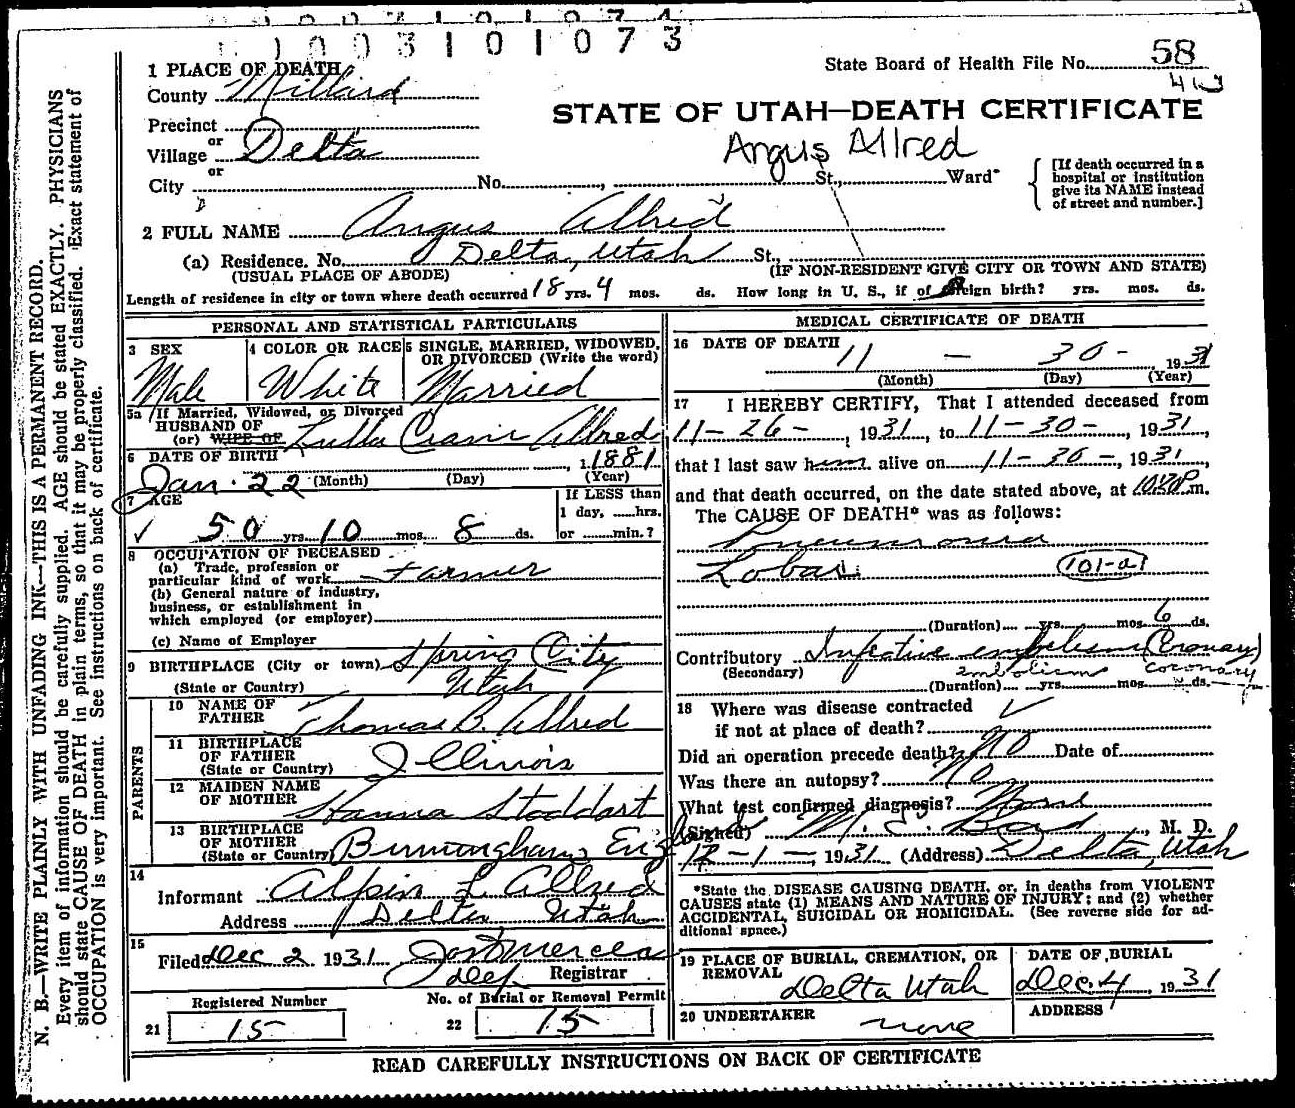 1003101073
State Board of Health File No. 58
1 PLACE OF DEATH
County Millard
STATE OF UTAH—DEATH CERTIFICATE
Precinct
or
Village Delta
Angus Allred
or
City No. , St., Ward*
[If death occurred in a
hospital or institution
give its NAME instead
of street and number.]
2 FULL NAME Angus Allred
(a) Residence. No. Delta, Utah St.,
(USUAL PLACE OF ABODE) (IF NON-RESIDENT GIVE CITY OR TOWN AND STATE)
Length of residence in city or town where death occurred 18 yrs. 4 mos. ds. How long in U. S., if of foreign birth? yrs. mos. ds.
PERSONAL AND STATISTICAL PARTICULARS
3 SEX
Male
4 COLOR OR RACE
White
5 SINGLE, MARRIED, WIDOWED,
OR DIVORCED (Write the word)
Married
5a If Married, Widowed, or Divorced
HUSBAND OF
(or) WIFE OF Allred
6 DATE OF BIRTH
Jan. 22 (Month) (Day) 1881 (Year)
7 AGE
50 yrs. 10 mos. 8 ds.
If LESS than
1 day, hrs.
or min.?
8 OCCUPATION OF DECEASED
(a) Trade, profession or
particular kind of work Farmer
(b) General nature of industry,
business, or establishment in
which employed (or employer)
(c) Name of Employer
9 BIRTHPLACE (City or town) Spring City
(State or Country) Utah
PARENTS
10 NAME OF
FATHER Thomas B. Allred
11 BIRTHPLACE
OF FATHER
(State or Country) Illinois
12 MAIDEN NAME
OF MOTHER Hanna Stoddart
13 BIRTHPLACE
OF MOTHER
(State or Country) Burmingham, England
14
Informant Alpin L Allred
Address Delta Utah
15
Filed Dec 2 1931
Dep Registrar
Registered Number
21 15
No. of Burial or Removal Permit
22 15
MEDICAL CERTIFICATE OF DEATH
16 DATE OF DEATH
11 - 30 - 1931
(Month) (Day) (Year)
17 I HEREBY CERTIFY, That I attended deceased from
11-26-, 1931, to 11-30-, 1931,
that I last saw him alive on 11-30-, 1931,
and that death occurred, on the date stated above, at 10:20 P m.
The CAUSE OF DEATH* was as follows:
Pneumonia
Lobar 101-a
(Duration) yrs. mos. 6 ds.
Contributory Infective embolism (Cronary)
(Secondary) embolism coronary
(Duration) yrs. mos. ds.
18 Where was disease contracted
if not at place of death?
Did an operation precede death? No Date of
Was there an autopsy? No
What test confirmed diagnosis? None
(Signed) Bird, M. D.
12-1-, 1931 (Address) Delta, Utah
*State the DISEASE CAUSING DEATH, or, in deaths from VIOLENT
CAUSES state (1) MEANS AND NATURE OF INJURY; and (2) whether
ACCIDENTAL, SUICIDAL OR HOMICIDAL. (See reverse side for ad-
ditional space.)
19 PLACE OF BURIAL, CREMATION, OR
REMOVAL
Delta Utah
DATE OF BURIAL
Dec. 4, 1931
20 UNDERTAKER
none
ADDRESS
READ CAREFULLY INSTRUCTIONS ON BACK OF CERTIFICATE
N. B.—WRITE PLAINLY WITH UNFADING INK—THIS IS A PERMANENT RECORD.
Every item of information should be carefully supplied. AGE should be stated EXACTLY. PHYSICIANS
should state CAUSE OF DEATH in plain terms, so that it may be properly classified. Exact statement of
OCCUPATION is very important. See instructions on back of certificate.